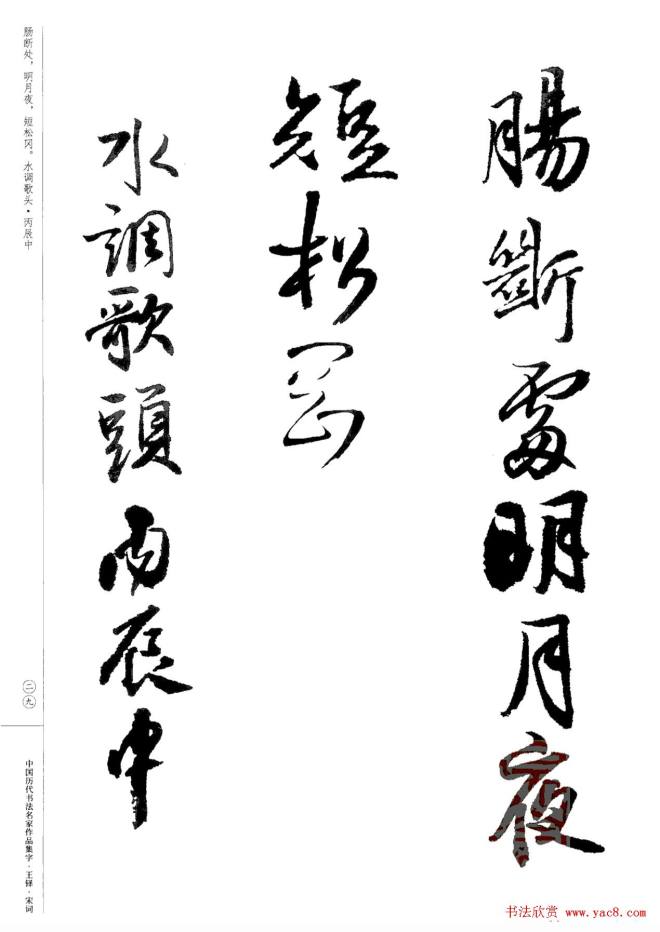 腸斷處明月夜
短松岡
水調歌頭丙辰中
肠断处，明月夜，短松冈。水调歌头·丙辰中
二九
中国历代书法名家作品集字·王铎·宋词
书法欣赏 www.yac8.com